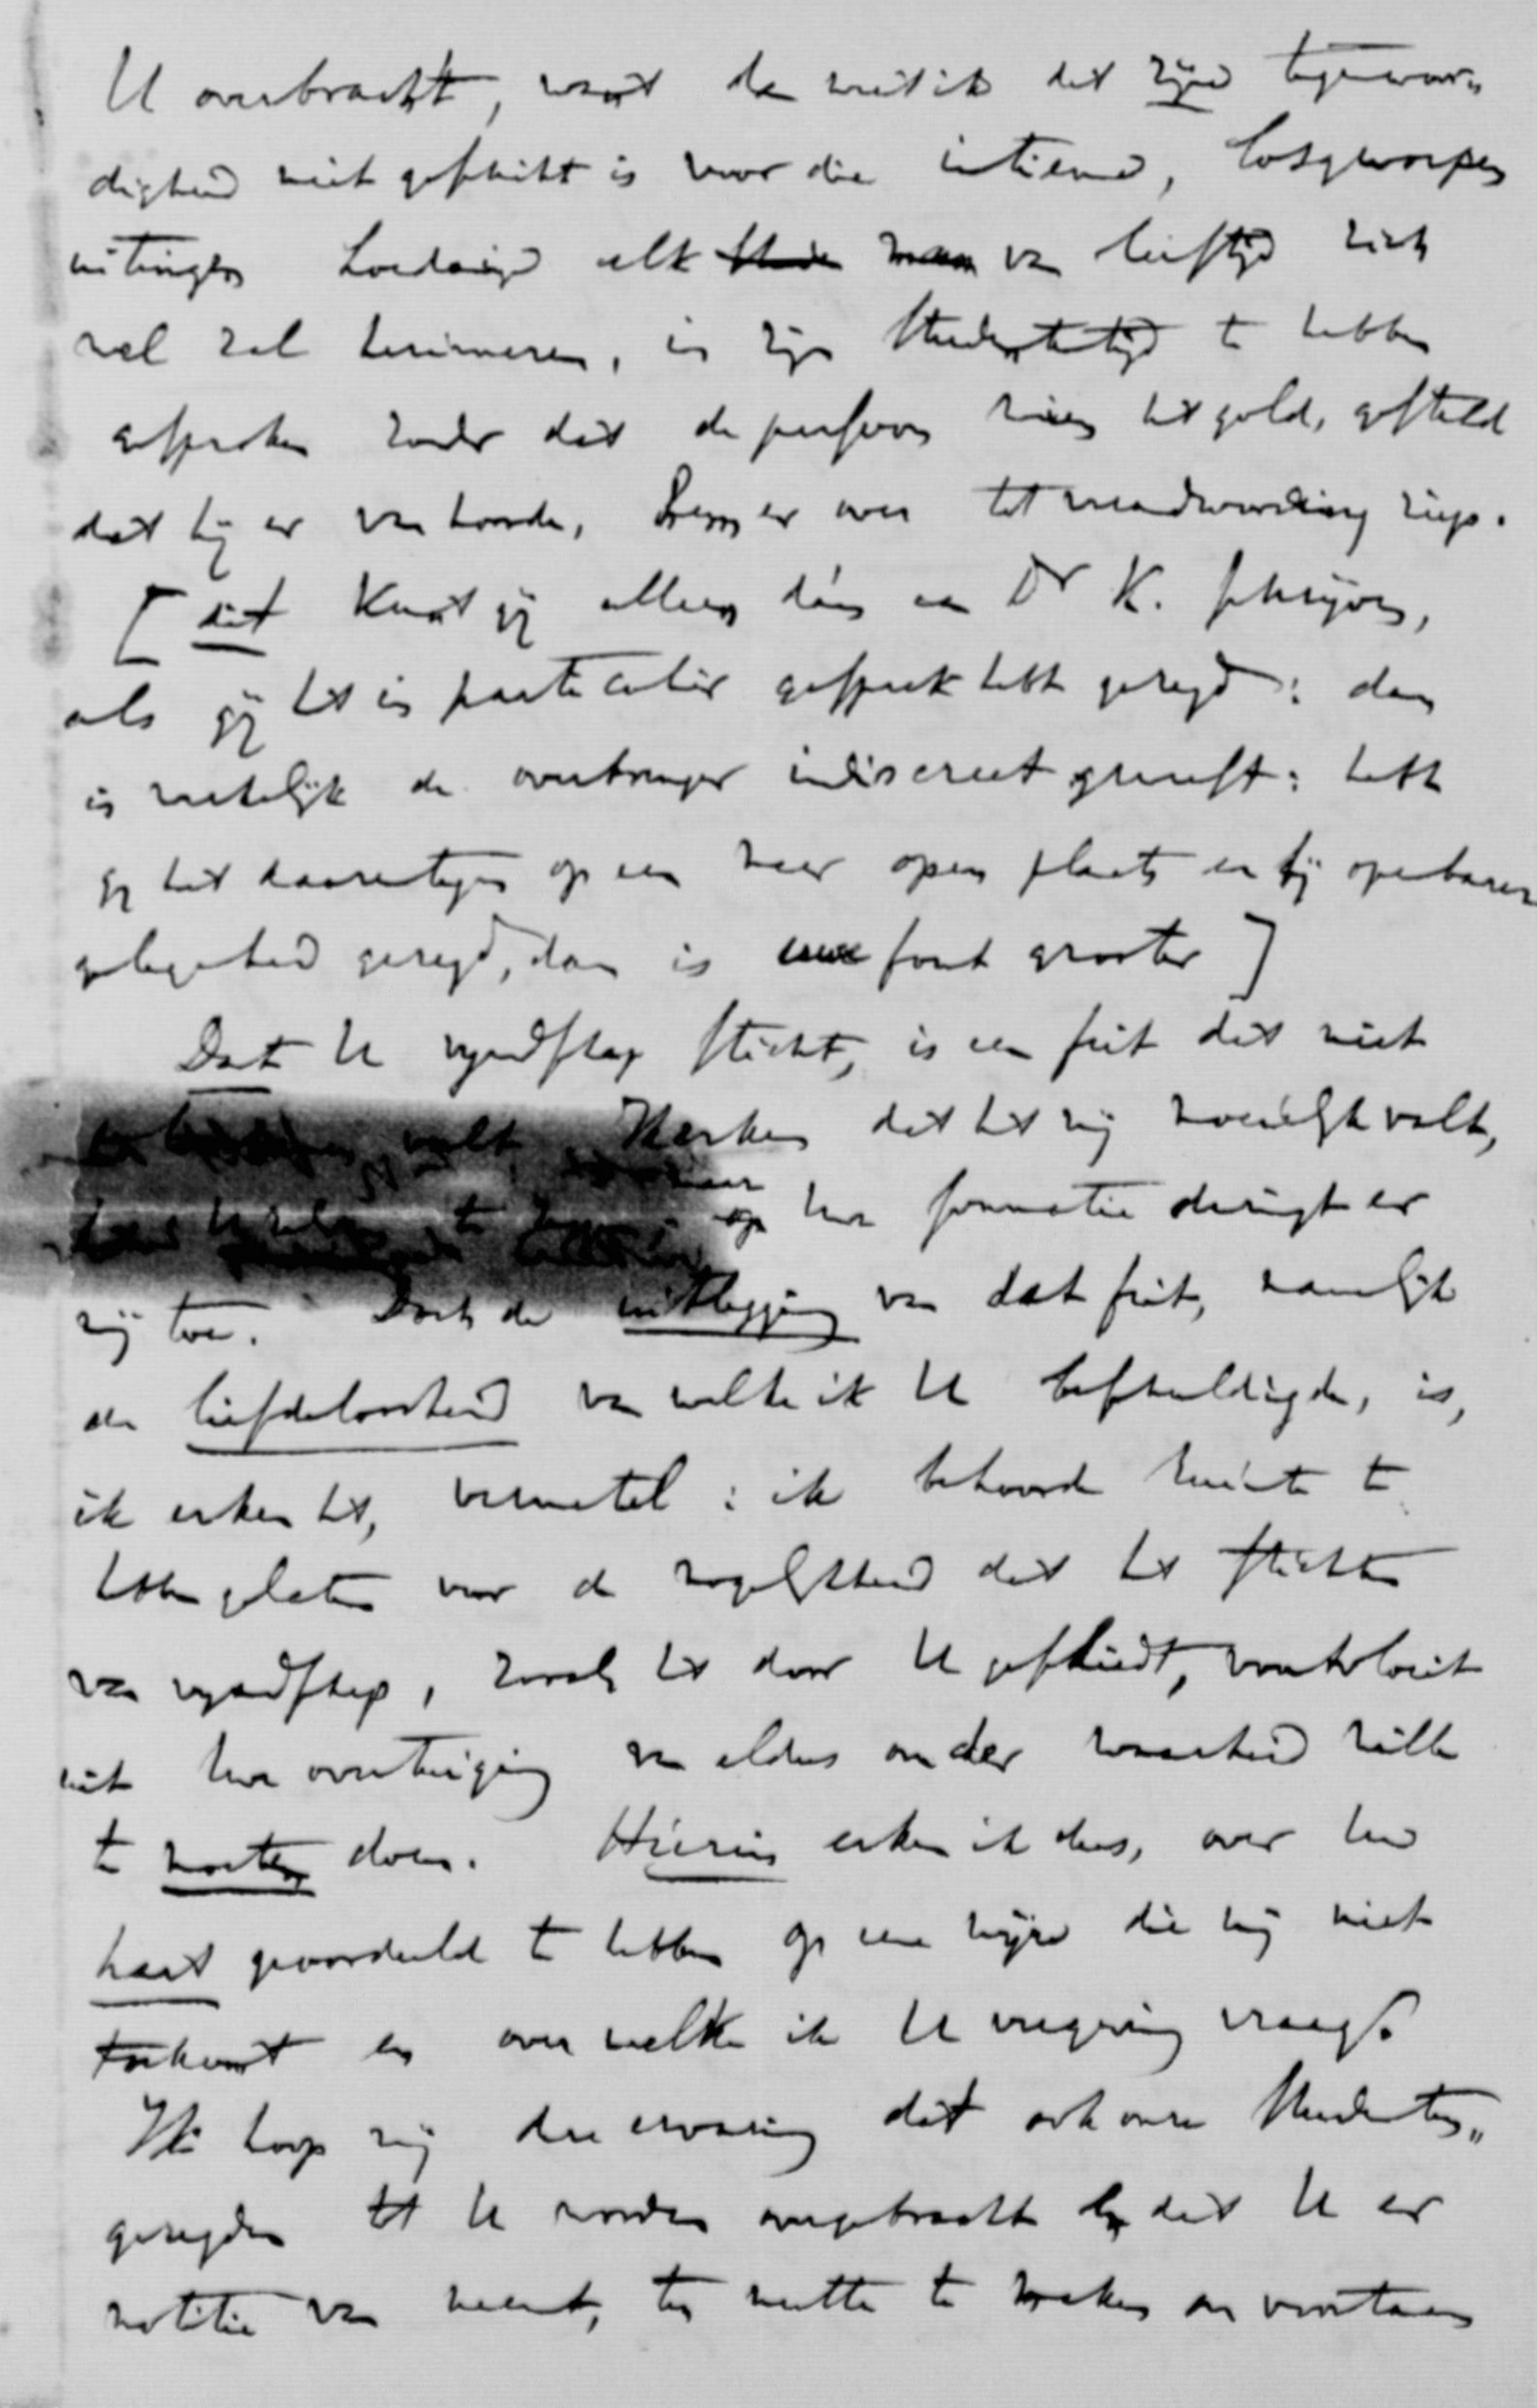 U overbracht, want dan weet ik dat zijne tegenwoor„
digheid niet geschikt is voor die intieme, losgeworpen
uitingen hoedanige elk man van leeftijd zich
wel zal herinneren, in zijn studententijd te hebben
gesproken zonder dat de persoon wien het gold, gesteld
dat hij er van hoorde, hem er over tot verantwoording riep.
[dit kunt gij alleen dán aan Dr K. schrijven,
als gij het in particulier gesprek hebt gezegd: dan
is namelijk de overbrenger indiscreet geweest: hebt
gij het daarentegen op een meer open plaats en bij openbare
gelegenheid gezegd, dan is uwe fout grooter]
Dat U vyandschap sticht, is een feit dat niet
valt. Merken dat het mij moeielijk valt,
op hun formatie dringt er
mij toe. Doch de uitlegging van dat feit, namelijk
de liefdeloosheid van welke ik U beschuldigde, is,
ik erken het, vermetel: ik behoorde ruimte te
hebben gelaten voor de mogelijkheid dat het stichten
van vyandschap, zooals het door U geschiedt, voortvloeit
uit uw overtuiging van aldus onder waarheid wille
te moeten doen. Hierin erken ik dus, over uw
hart geoordeeld te hebben op eene wijze die mij niet
toekomt en over welke ik U vergeving vraag.
Ik hoop mij deze ervaring dat ook onze Studenten„
gezegden tot U worden overgebracht en dat U er
notitie van neemt, ten nutte te maken om voortaan